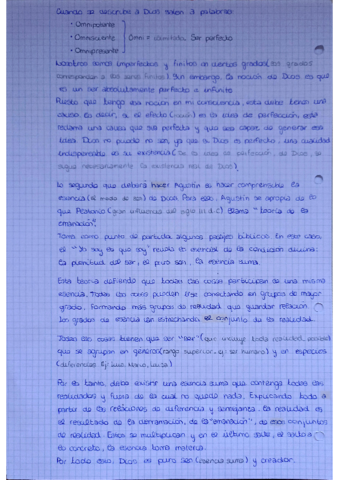 Cuando se describe a Dios salen 3 palabras:
· Omnipotente
· Omnisciente } Omni = absoluto. Ser perfecto
· Omnipresente
Nosotros somos imperfectos y finitos en ciertos grados (los grados
corresponden a los seres finitos). Sin embargo, la noción de Dios es que
es un ser absolutamente perfecto e infinito.
Puesto que tengo esa noción en mi consciencia, esta debe tener una
causa. Es decir, si el efecto (noción) es la idea de perfección, este
reclama una causa que sea perfecta y que sea capaz de generar esa
idea. Dios no puede no ser, ya que si Dios es perfecto, una cualidad
indispensable es su existencia (De la idea de perfección, de Dios, se
sigue necesariamente la existencia real de Dios).
Lo segundo que deberá hacer Agustín es hacer comprensible la
esencia (el modo de ser) de Dios. Para eso, Agustín se apropia de lo
que Plotonio (gran influencia del siglo III d.C) llama "teoría de la
emanación".
Toma como punto de partida algunos pasajes bíblicos. En este caso,
el "Yo soy el que soy" revela lo esencial de la condición divina:
la plenitud del ser, el puro ser, la esencia suma.
Esta teoría defiende que todas las cosas participan de una misma
esencia. Todas las cosas pueden irse constituyendo en grupos de mayor
grado. Formando más grupos de realidad que guardan relación.
Los grados de esencia van estrechando el conjunto de la realidad.
Todas las cosas tienen que ver "ser" (que incluye toda realidad,
que se agrupan en géneros (rango superior, ej: ser humano) y en especies
(diferencias. Ej: Luis, María, Luisa)
Por lo tanto, debe existir una esencia suma que contenga todas las
realidades y fuera de la cual no quede nada. Explicando todo a
partir de las relaciones de diferencia y semejanza. La realidad es
el resultado de la derramación, de la "emanación", de esos conjuntos
de realidad. Estos se multiplican y en el último caso,
lo concreto, la esencia toma materia.
Por todo eso, Dios es puro ser (esencia suma) y creador.